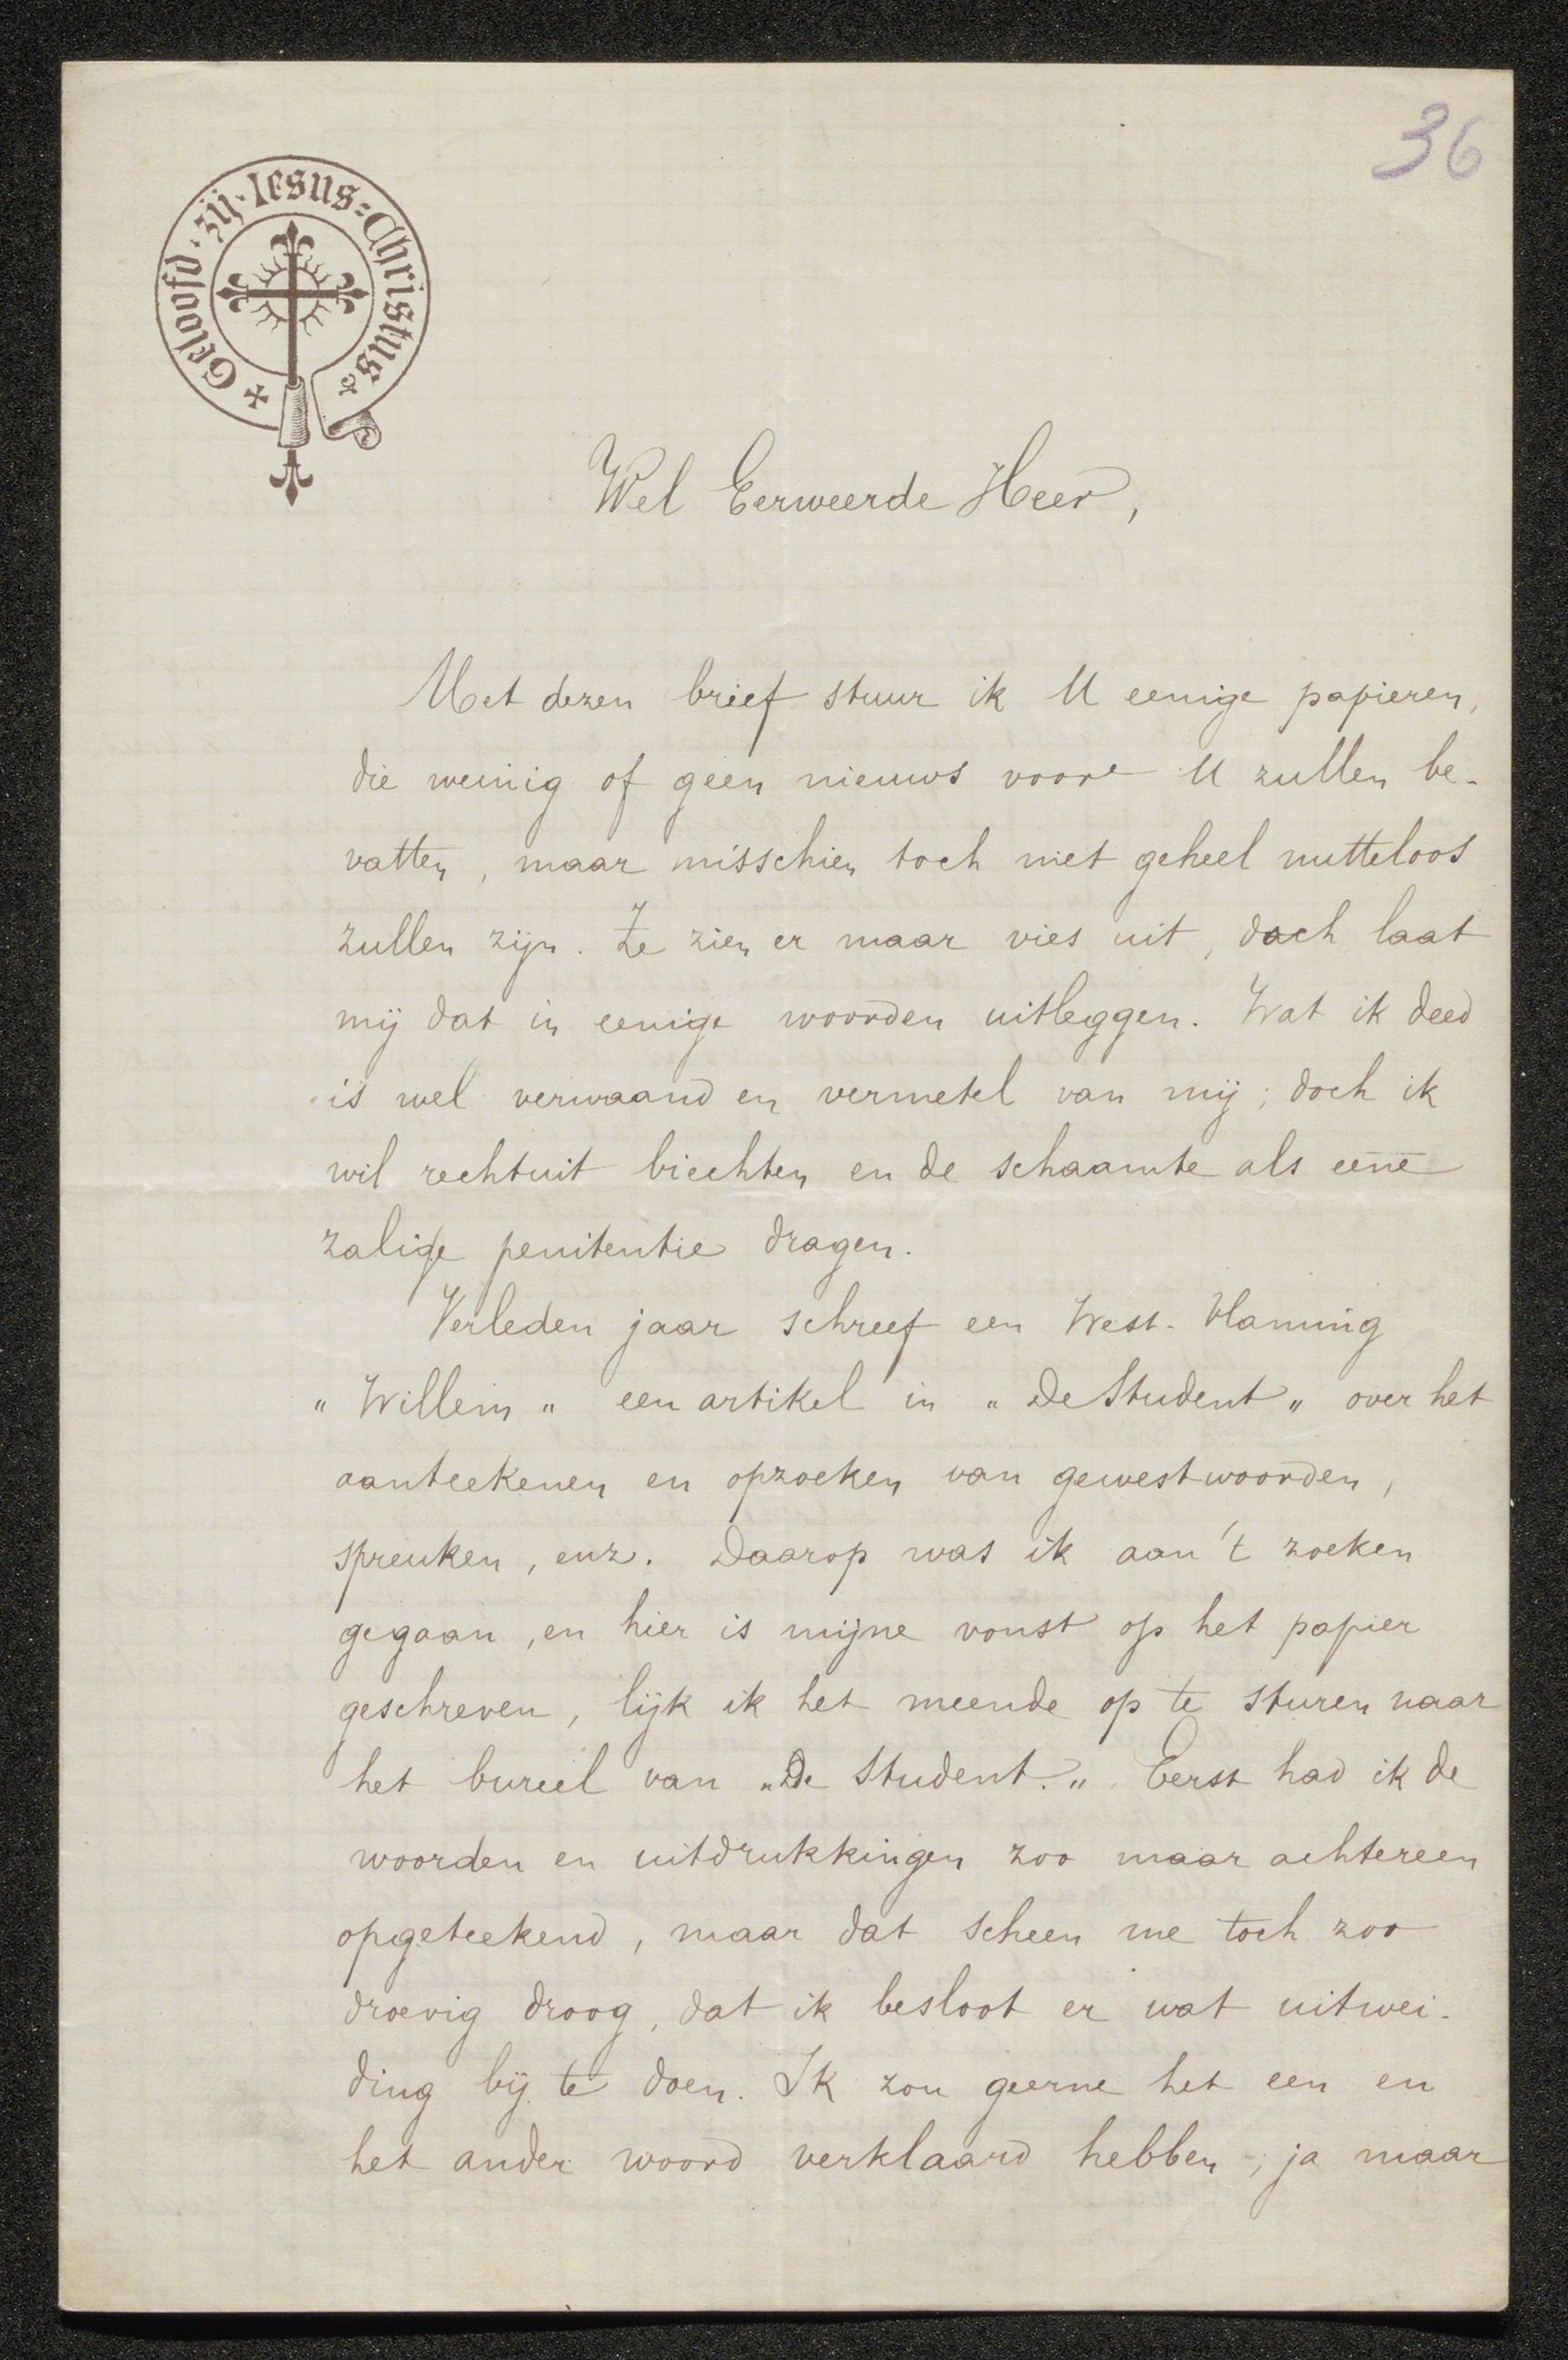 36
✠ Geloofd · zij · Iesus = Christus
Wel Eerweerde Heer,
Met dezen brief stuur ik U eenige papieren,
die weinig of geen nieuws voor U zullen be-
vatten, maar misschien toch niet geheel nutteloos
zullen zijn. Ze zien er maar vies uit, doch laat
mij dat in eenige woorden uitleggen. Wat ik deed
is wel verwaand en vermetel van mij; doch ik
wil rechtuit biechten en de schaamte als eene
zalige penitentie dragen.
Verleden jaar schreef een West-Vlaming
„Willem„ een artikel in „De Student„ over het
aanteekenen en opzoeken van gewestwoorden,
spreuken, enz. Daarop was ik aan 't zoeken
gegaan, en hier is mijne vonst op het papier
geschreven, lijk ik het meende op te sturen naar
het bureel van „De Student.„ Eerst had ik de
woorden en uitdrukkingen zoo maar achtereen
opgeteekend, maar dat scheen me toch zoo
droevig droog, dat ik besloot er wat uitwei-
ding bij te doen. Ik zou geerne het een en
het ander woord verklaard hebben; ja maar